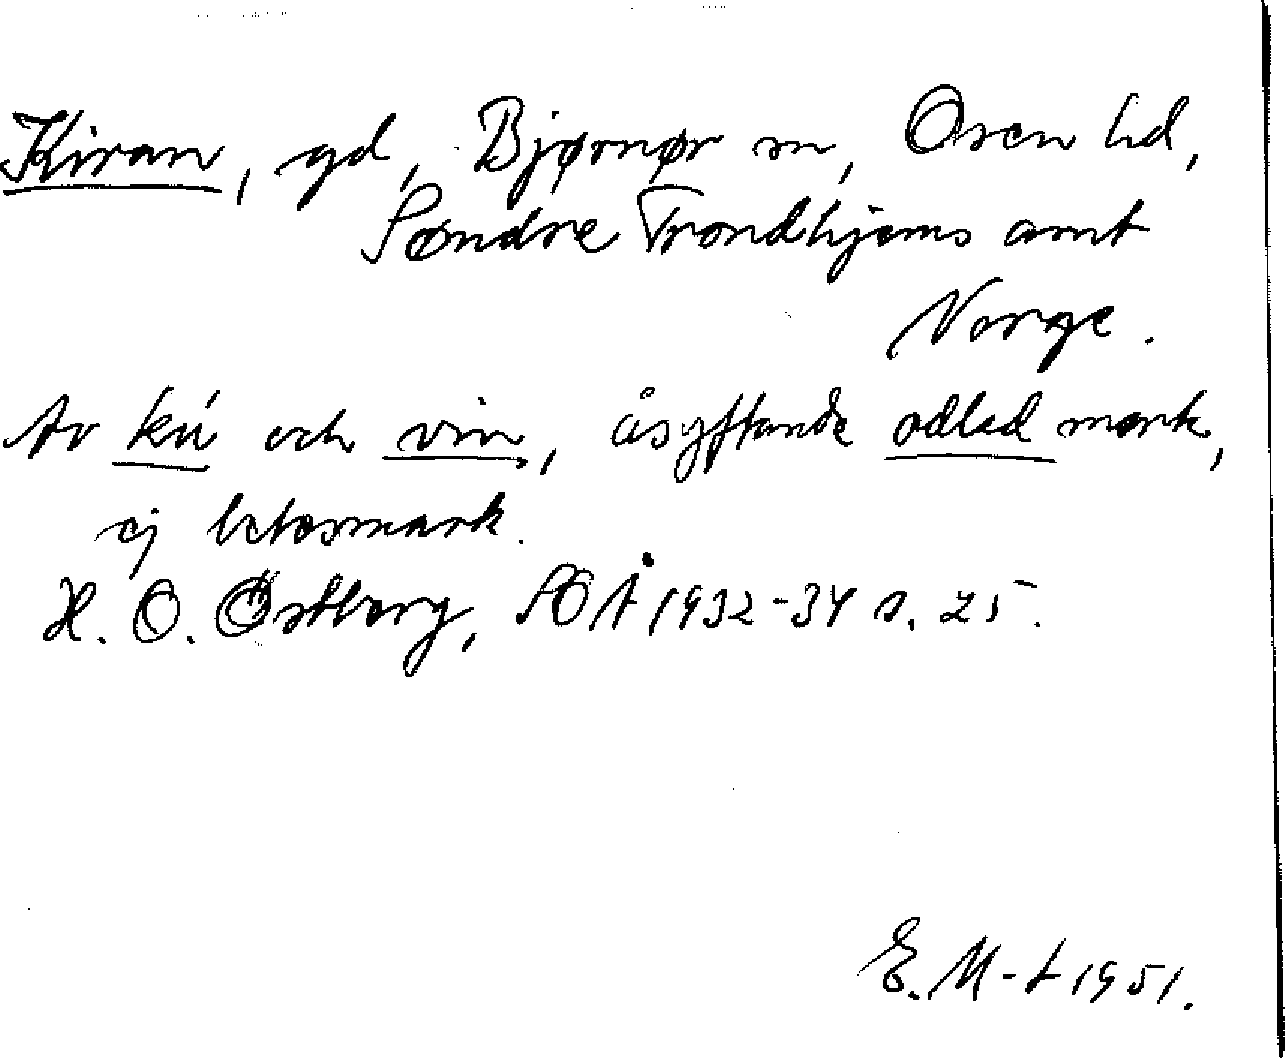 Kiran, gd, Bjørnør sn, Osen hd,
Søndre Trondhjems amt
Norge.
Av kú och vin, åsyftande odlad mark,
ej betesmark.
H. O. Østberg, SOÅ 1932-34 s. 25.
E. M-t 1951.